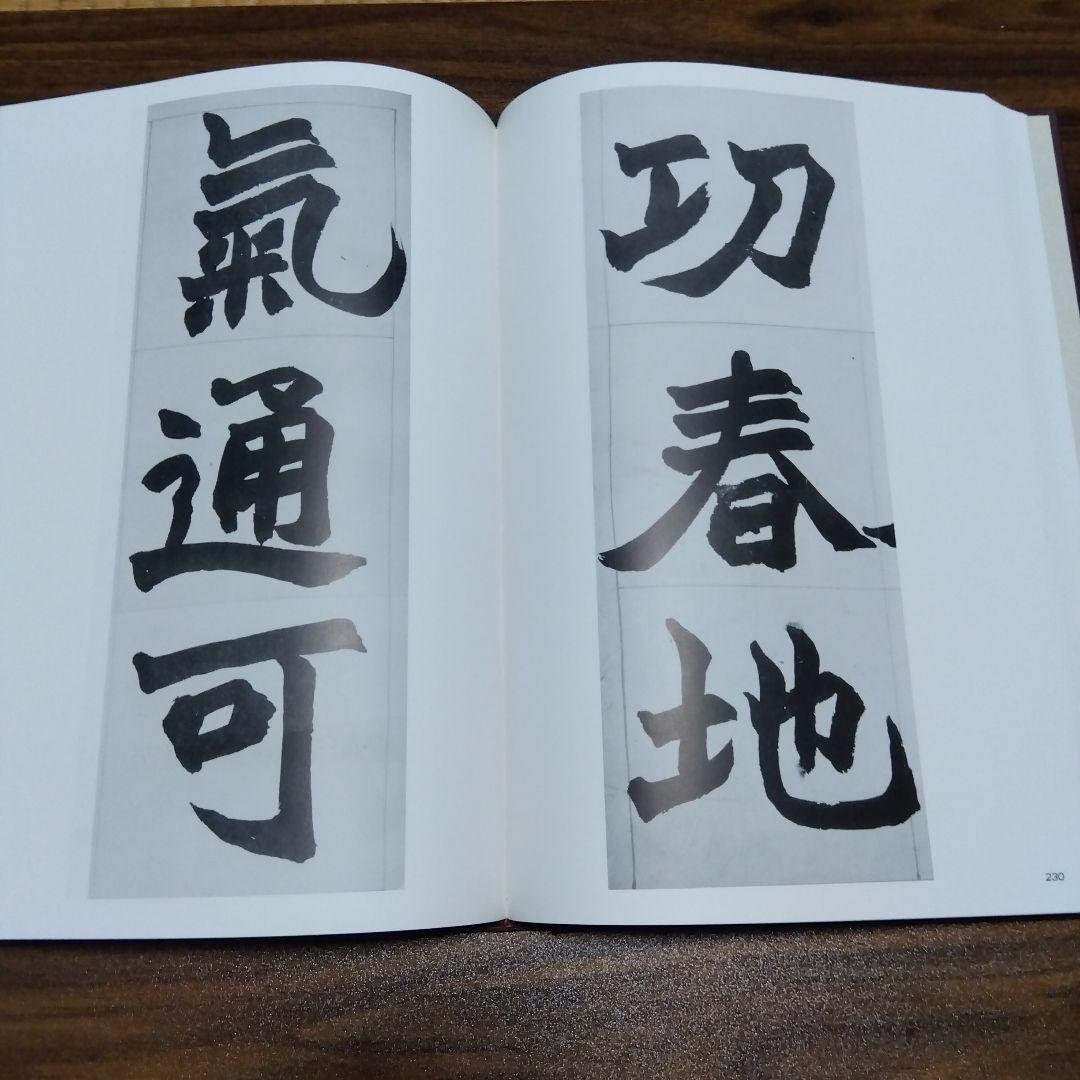 功春地
氣通可
230